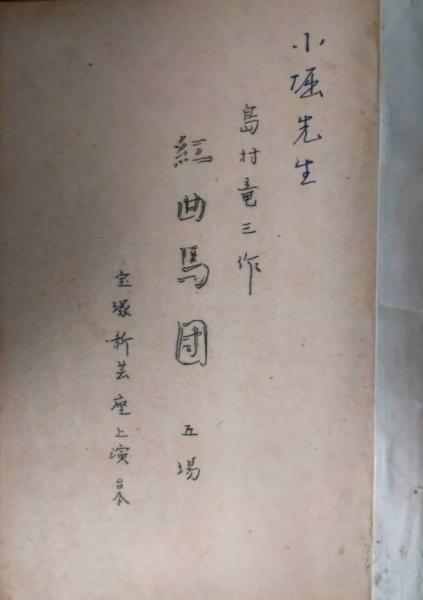 小堀先生
島村竜三作
紅曲馬団 五場
宝塚新芸座上演台本